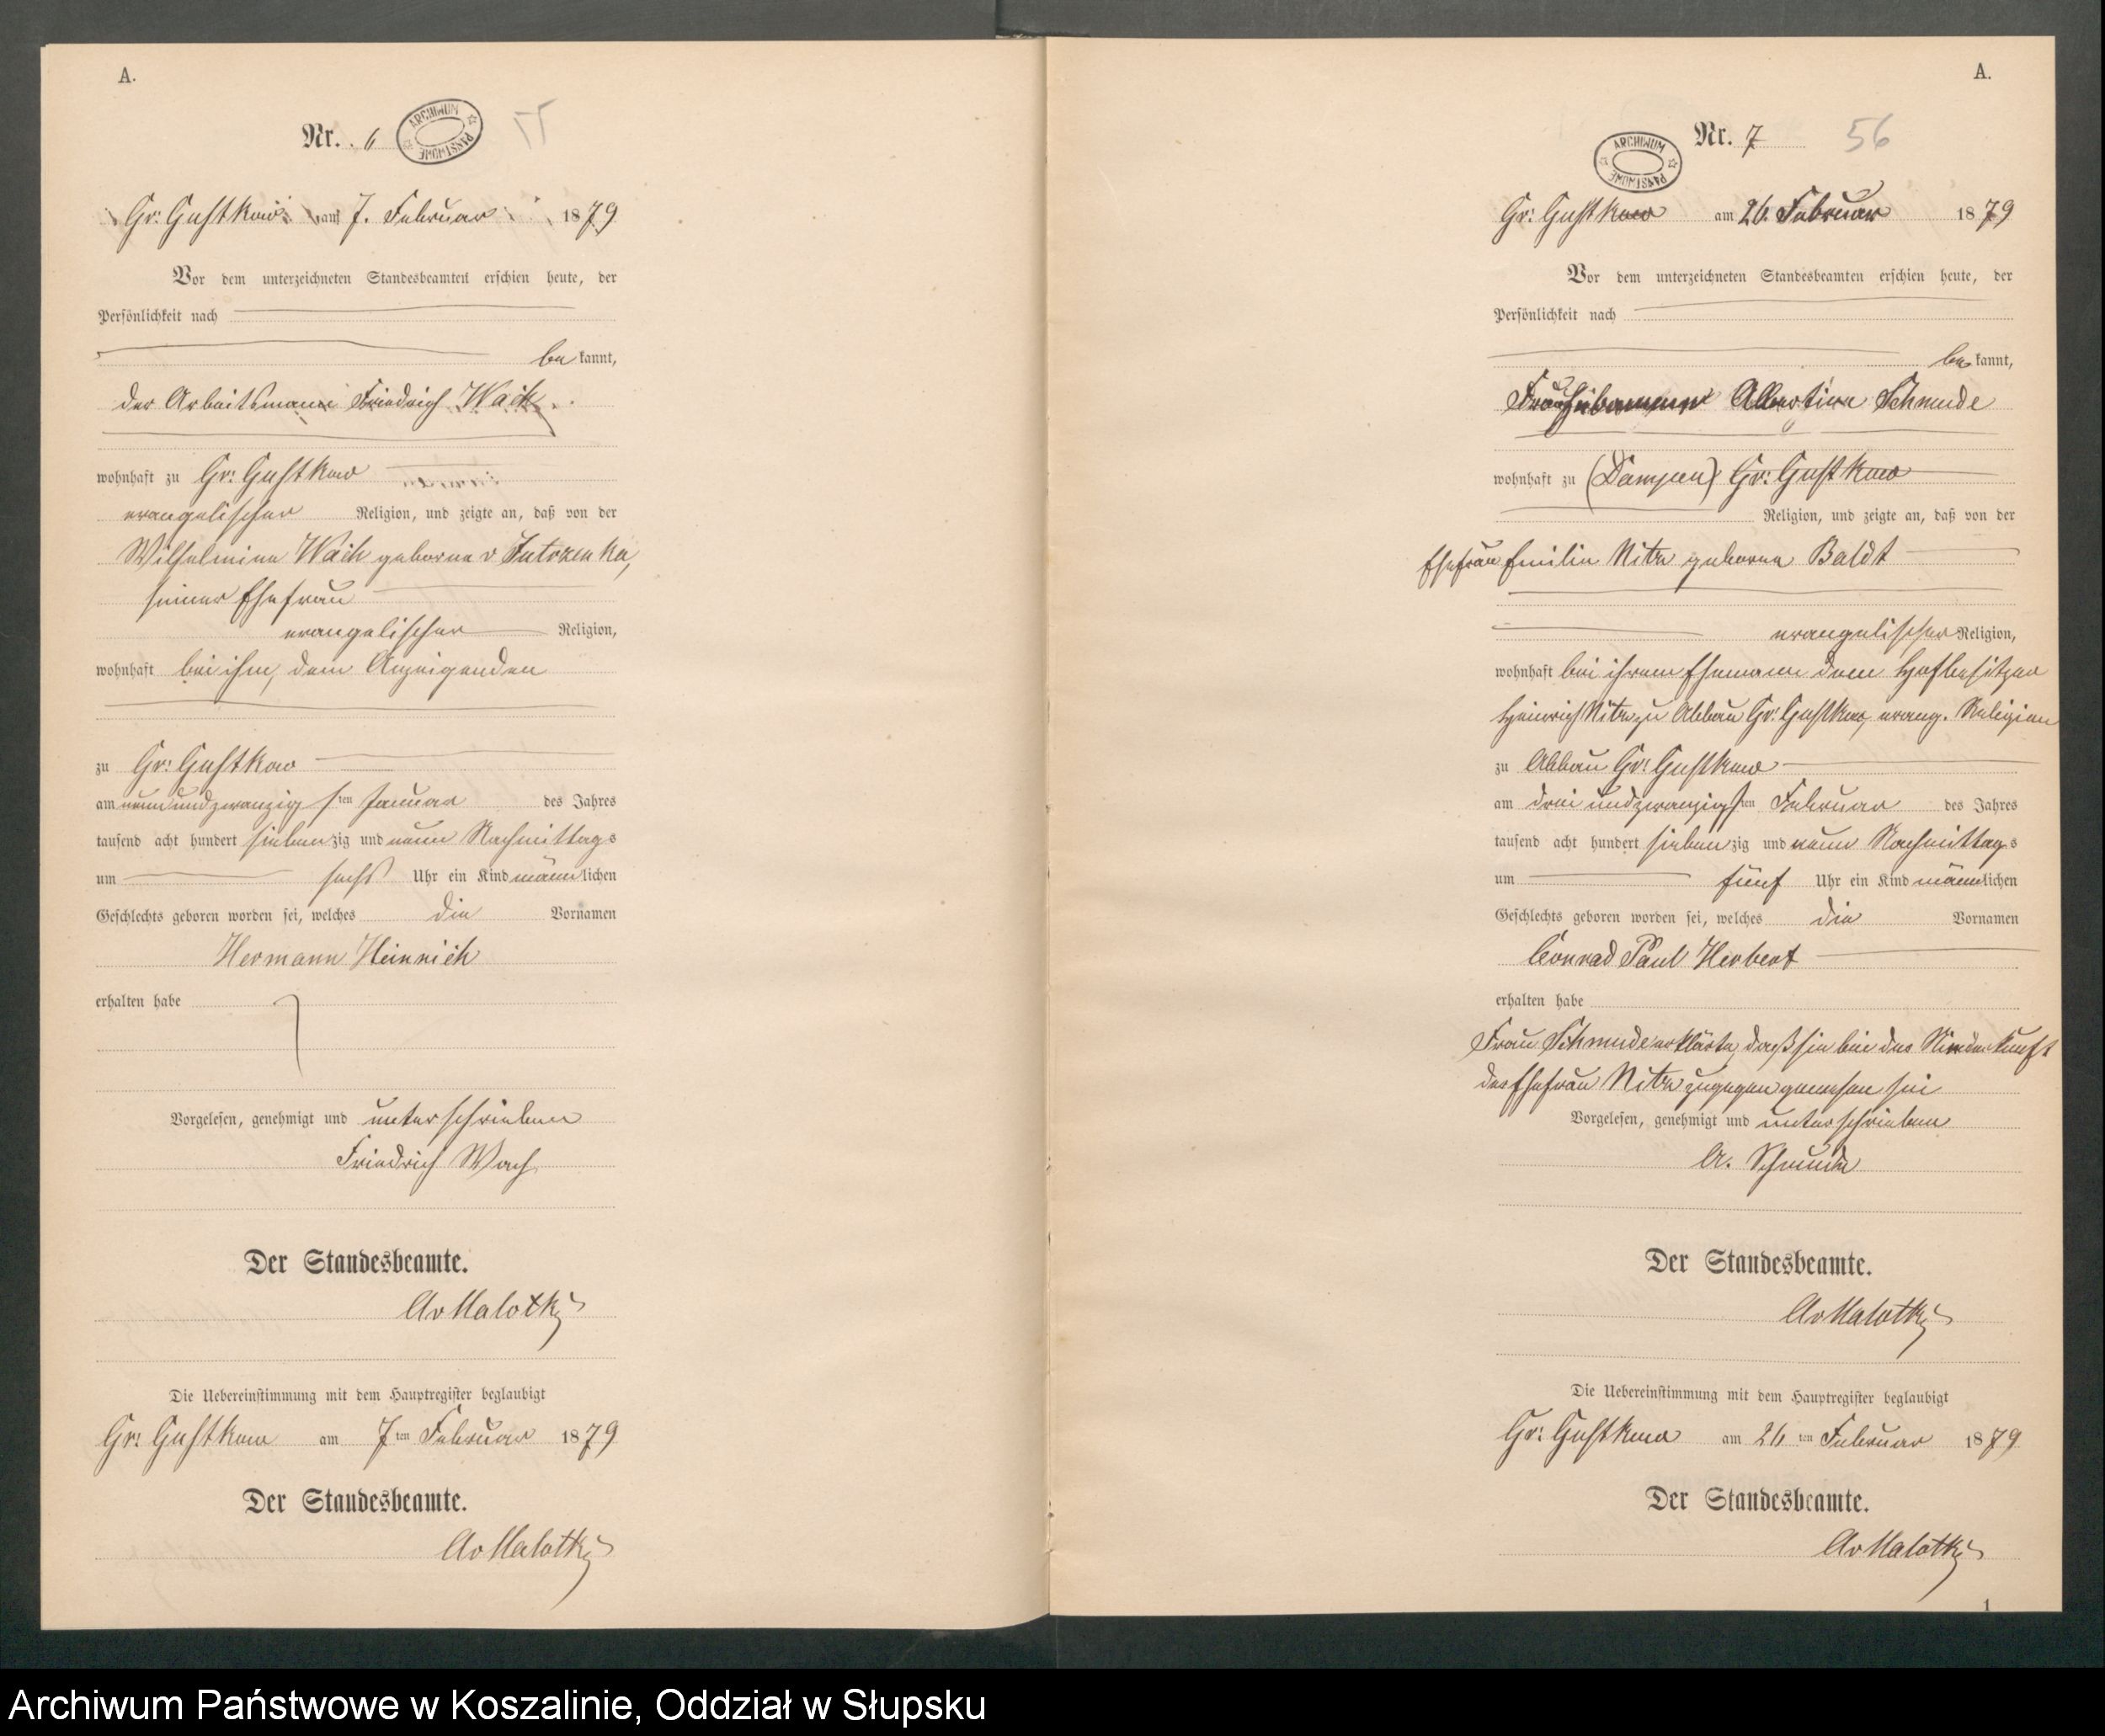 A.
Nr. 6
ARCHIWUM PAŃSTWOWE
55
Gr: Gustkow am 7. Februar 1879
Vor dem unterzeichneten Standesbeamten erschien heute, der
Persönlichkeit nach
be kannt,
der Arbeitsmann Friedrich Wach
wohnhaft zu Gr: Gustkow
evangelischer Religion, und zeigte an, daß von der
Wilhelmine Wach geborne v
seiner Ehefrau
evangelischer Religion,
wohnhaft bei ihm, dem Anzeigenden
zu Gr: Gustkow
am neunundzwanzigsten Januar des Jahres
tausend acht hundert siebenzig und neun Nachmittags
um sechs Uhr ein Kind männlichen
Geschlechts geboren worden sei, welches die Vornamen
Hermann Heinrich
erhalten habe
Vorgelesen, genehmigt und unterschrieben
Friedrich Wach
Der Standesbeamte.
AvMalotky
Die Uebereinstimmung mit dem Hauptregister beglaubigt
Gr: Gustkow am 7ten Februar 1879
Der Standesbeamte.
AvMalotky
A.
Nr. 7
ARCHIWUM PAŃSTWOWE
56
Gr: Gustkow am 26. Februar 1879
Vor dem unterzeichneten Standesbeamten erschien heute, der
Persönlichkeit nach
be kannt,
Frau Hebamme Albertine Schmude
wohnhaft zu (Dampen) Gr: Gustkow
Religion, und zeigte an, daß von der
Ehefrau Emilie Nitz geborne Baldt
evangelischer Religion,
wohnhaft bei ihrem Ehemann dem Hofbesitzer
Heinrich Nitz zu Abbau Gr: Gustkow, evang. Religion
zu Abbau Gr: Gustkow
am dreiundzwanzigsten Februar des Jahres
tausend acht hundert siebenzig und neun Nachmittags
um fünf Uhr ein Kind männlichen
Geschlechts geboren worden sei, welches die Vornamen
Conrad Paul Herbert
erhalten habe
Frau Schmude erklärte, daß sie bei der Niederkunft
der Ehefrau Nitz zugegen gewesen sei
Vorgelesen, genehmigt und unterschrieben
A. Schmude
Der Standesbeamte.
AvMalotky
Die Uebereinstimmung mit dem Hauptregister beglaubigt
Gr: Gustkow am 26ten Februar 1879
Der Standesbeamte.
AvMalotky
1
Archiwum Państwowe w Koszalinie, Oddział w Słupsku